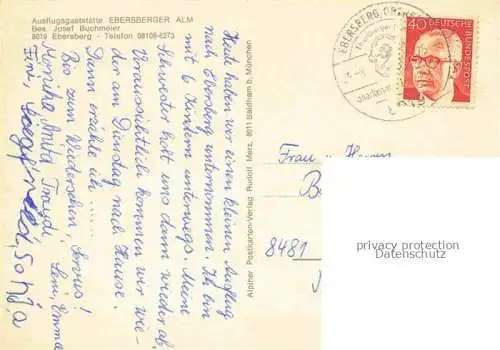 Ausflugsgaststätte EBERSBERGER ALM
Bes. Josef Buchmeier
8019 Ebersberg - Telefon 08106-8273
Heute haben wir einen kleinen Ausflug
nach Ebersberg unternommen. Ich bin
mit 6 Kindern unterwegs. Meine
Schwester holt uns dann wieder ab.
Voraussichtlich kommen wir wie-
der am Dienstag nach Hause.
Dann erzähle ich .....
Bis zum Wiedersehen! Servus!
Monika, Anita, Traudi, Leni, Emma
Tini, Siegfried, Sonja
Alpiner Postkarten-Verlag Rudolf Merz, 8011 Baldham b. München
EBERSBERG, OBERBAY
40
DEUTSCHE
BUNDESPOST
Frau u. Herrn
8481
privacy protection
Redaktionell / Editorial